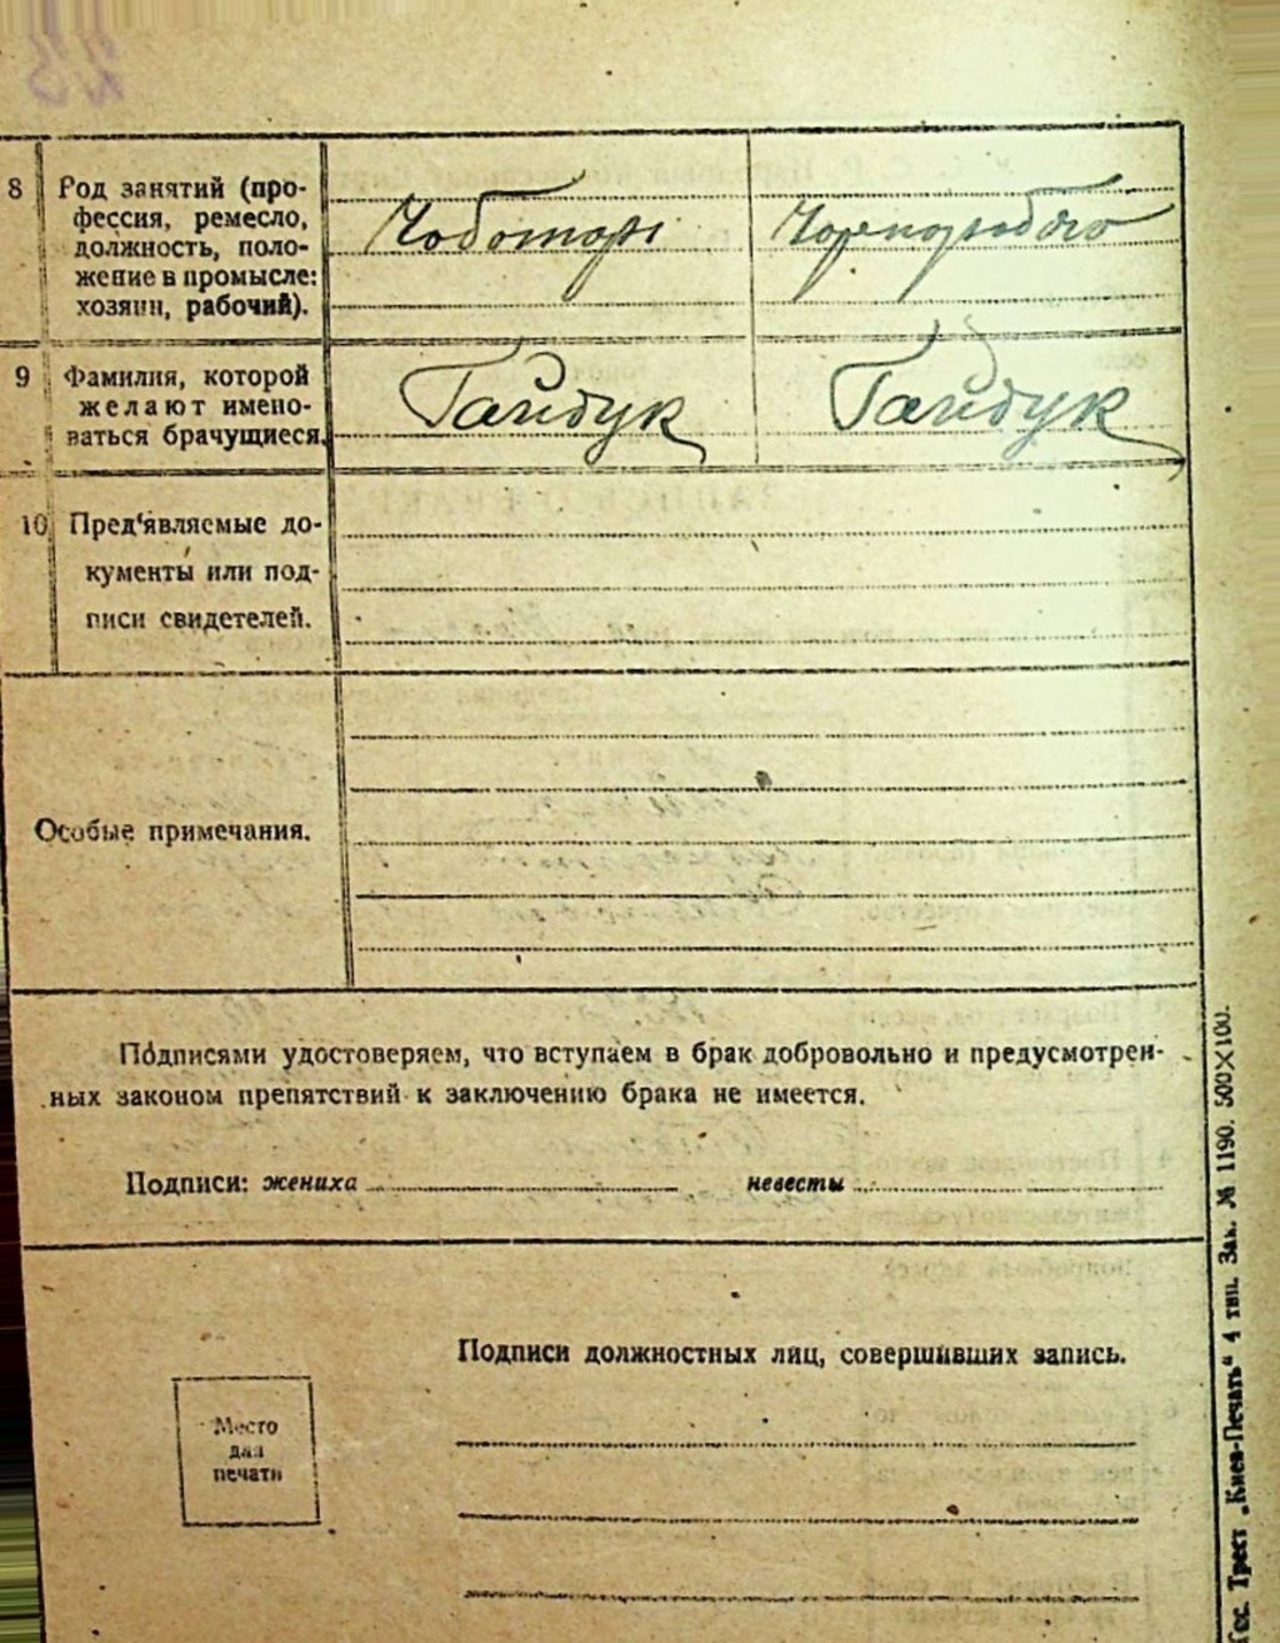 23
8 Род занятий (про-
фессия, ремесло,
должность, поло-
жение в промысле:
хозяин, рабочий).
Чоботарь Чорнороботою
9 Фамилия, которой
желают имено-
ваться брачущиеся.
Гайдук Гайдук
10 Пред‘являемые до-
кументы или под-
писи свидетелей.
Особые примечания.
Подписями удостоверяем, что вступаем в брак добровольно и предусмотрен-
ных законом препятствий к заключению брака не имеется.
Подписи: жениха невесты
Подписи должностных лиц, совершивших запись.
Место
для
печати
Гос. Трест „Киев-Печать“ 4 тип. Зак. № 1190. 500×100.